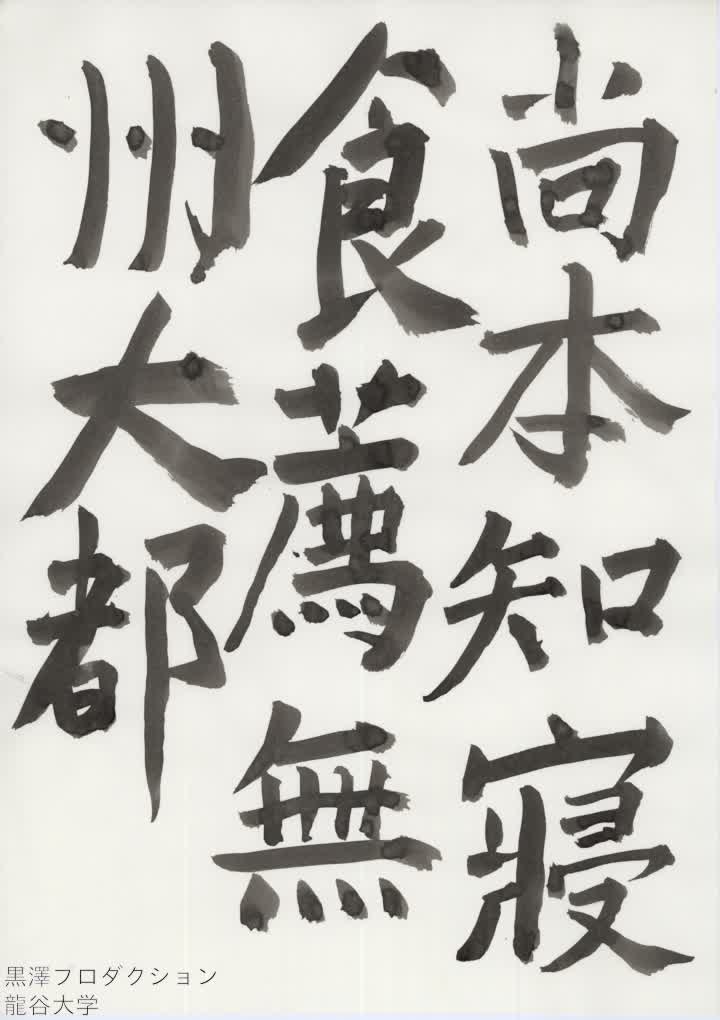 尚本知寝
食薦無
州大都
黒澤プロダクション
龍谷大学